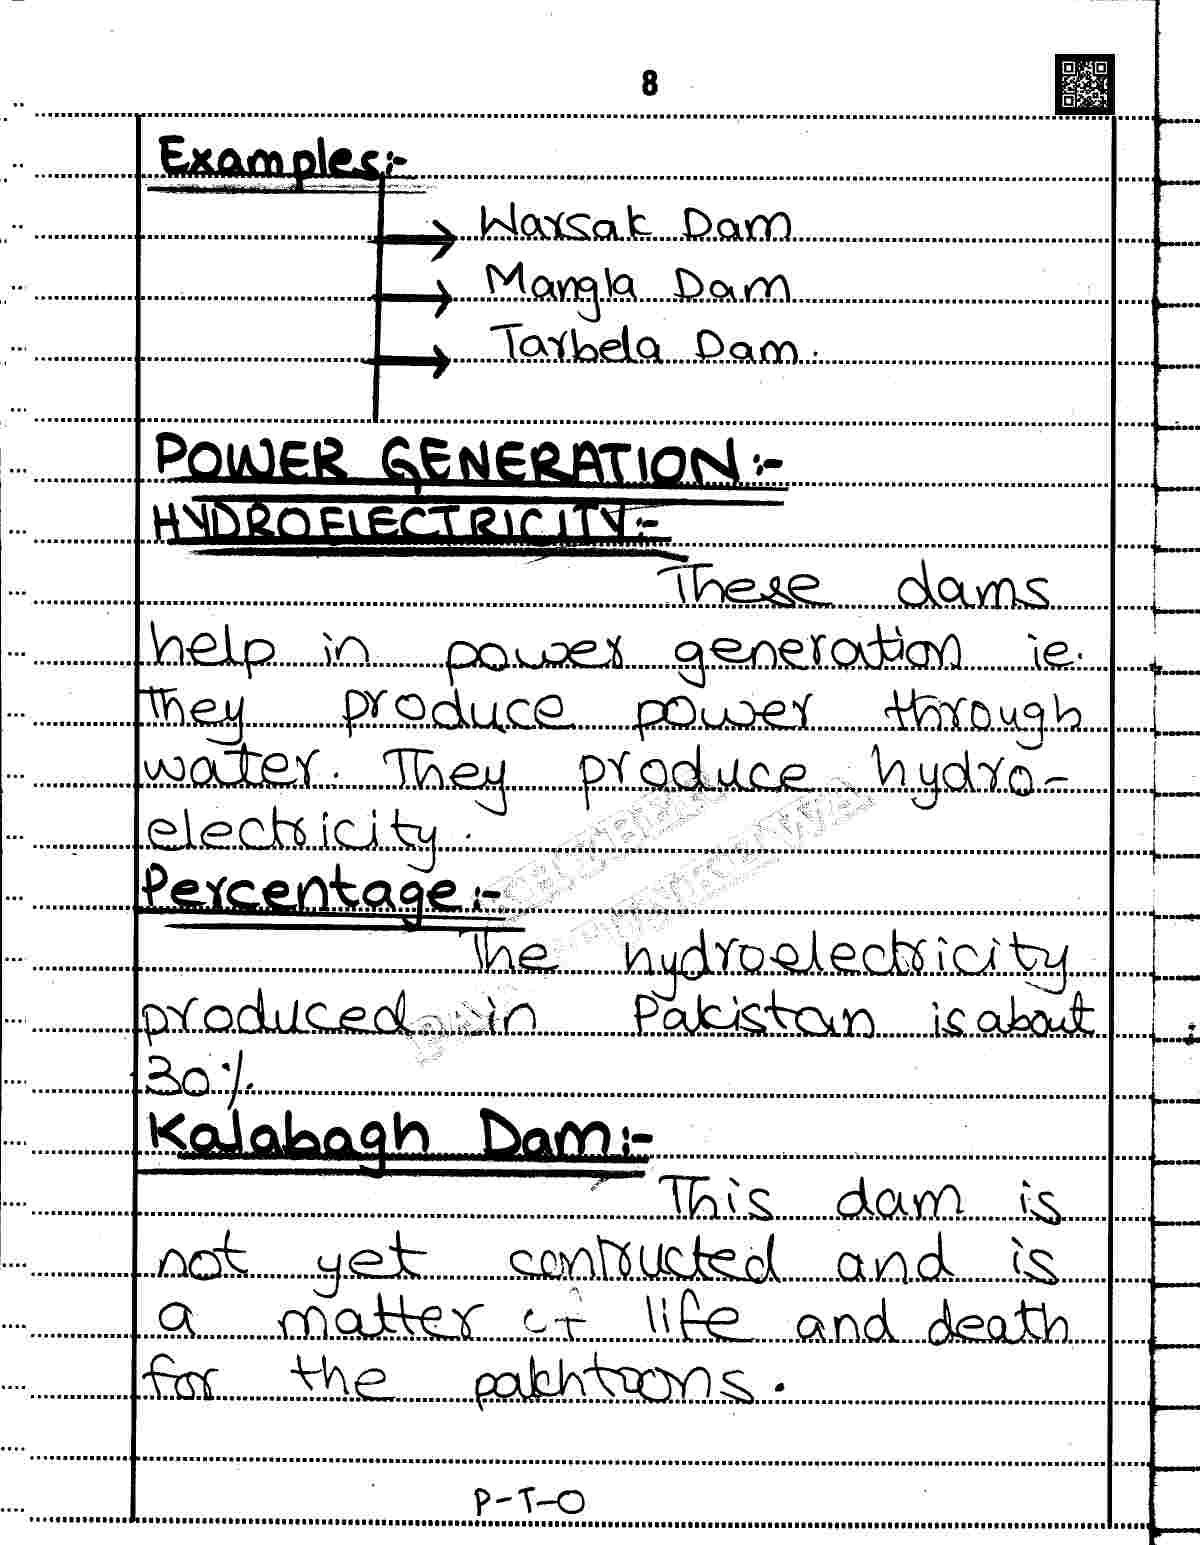 8
Examples:-
Warsak Dam
Mangla Dam
Tarbela Dam.
POWER GENERATION:-
HYDROELECTRICITY:-
These dams
help in power generation ie.
they produce power through
water. They produce hydro-
electricity.
Percentage:-
The hydroelectricity
produced in Pakistan is about
30%
Kalabagh Dam:-
This dam is
not yet contructed and is
a matter of life and death
for the pakhtoons.
P-T-O